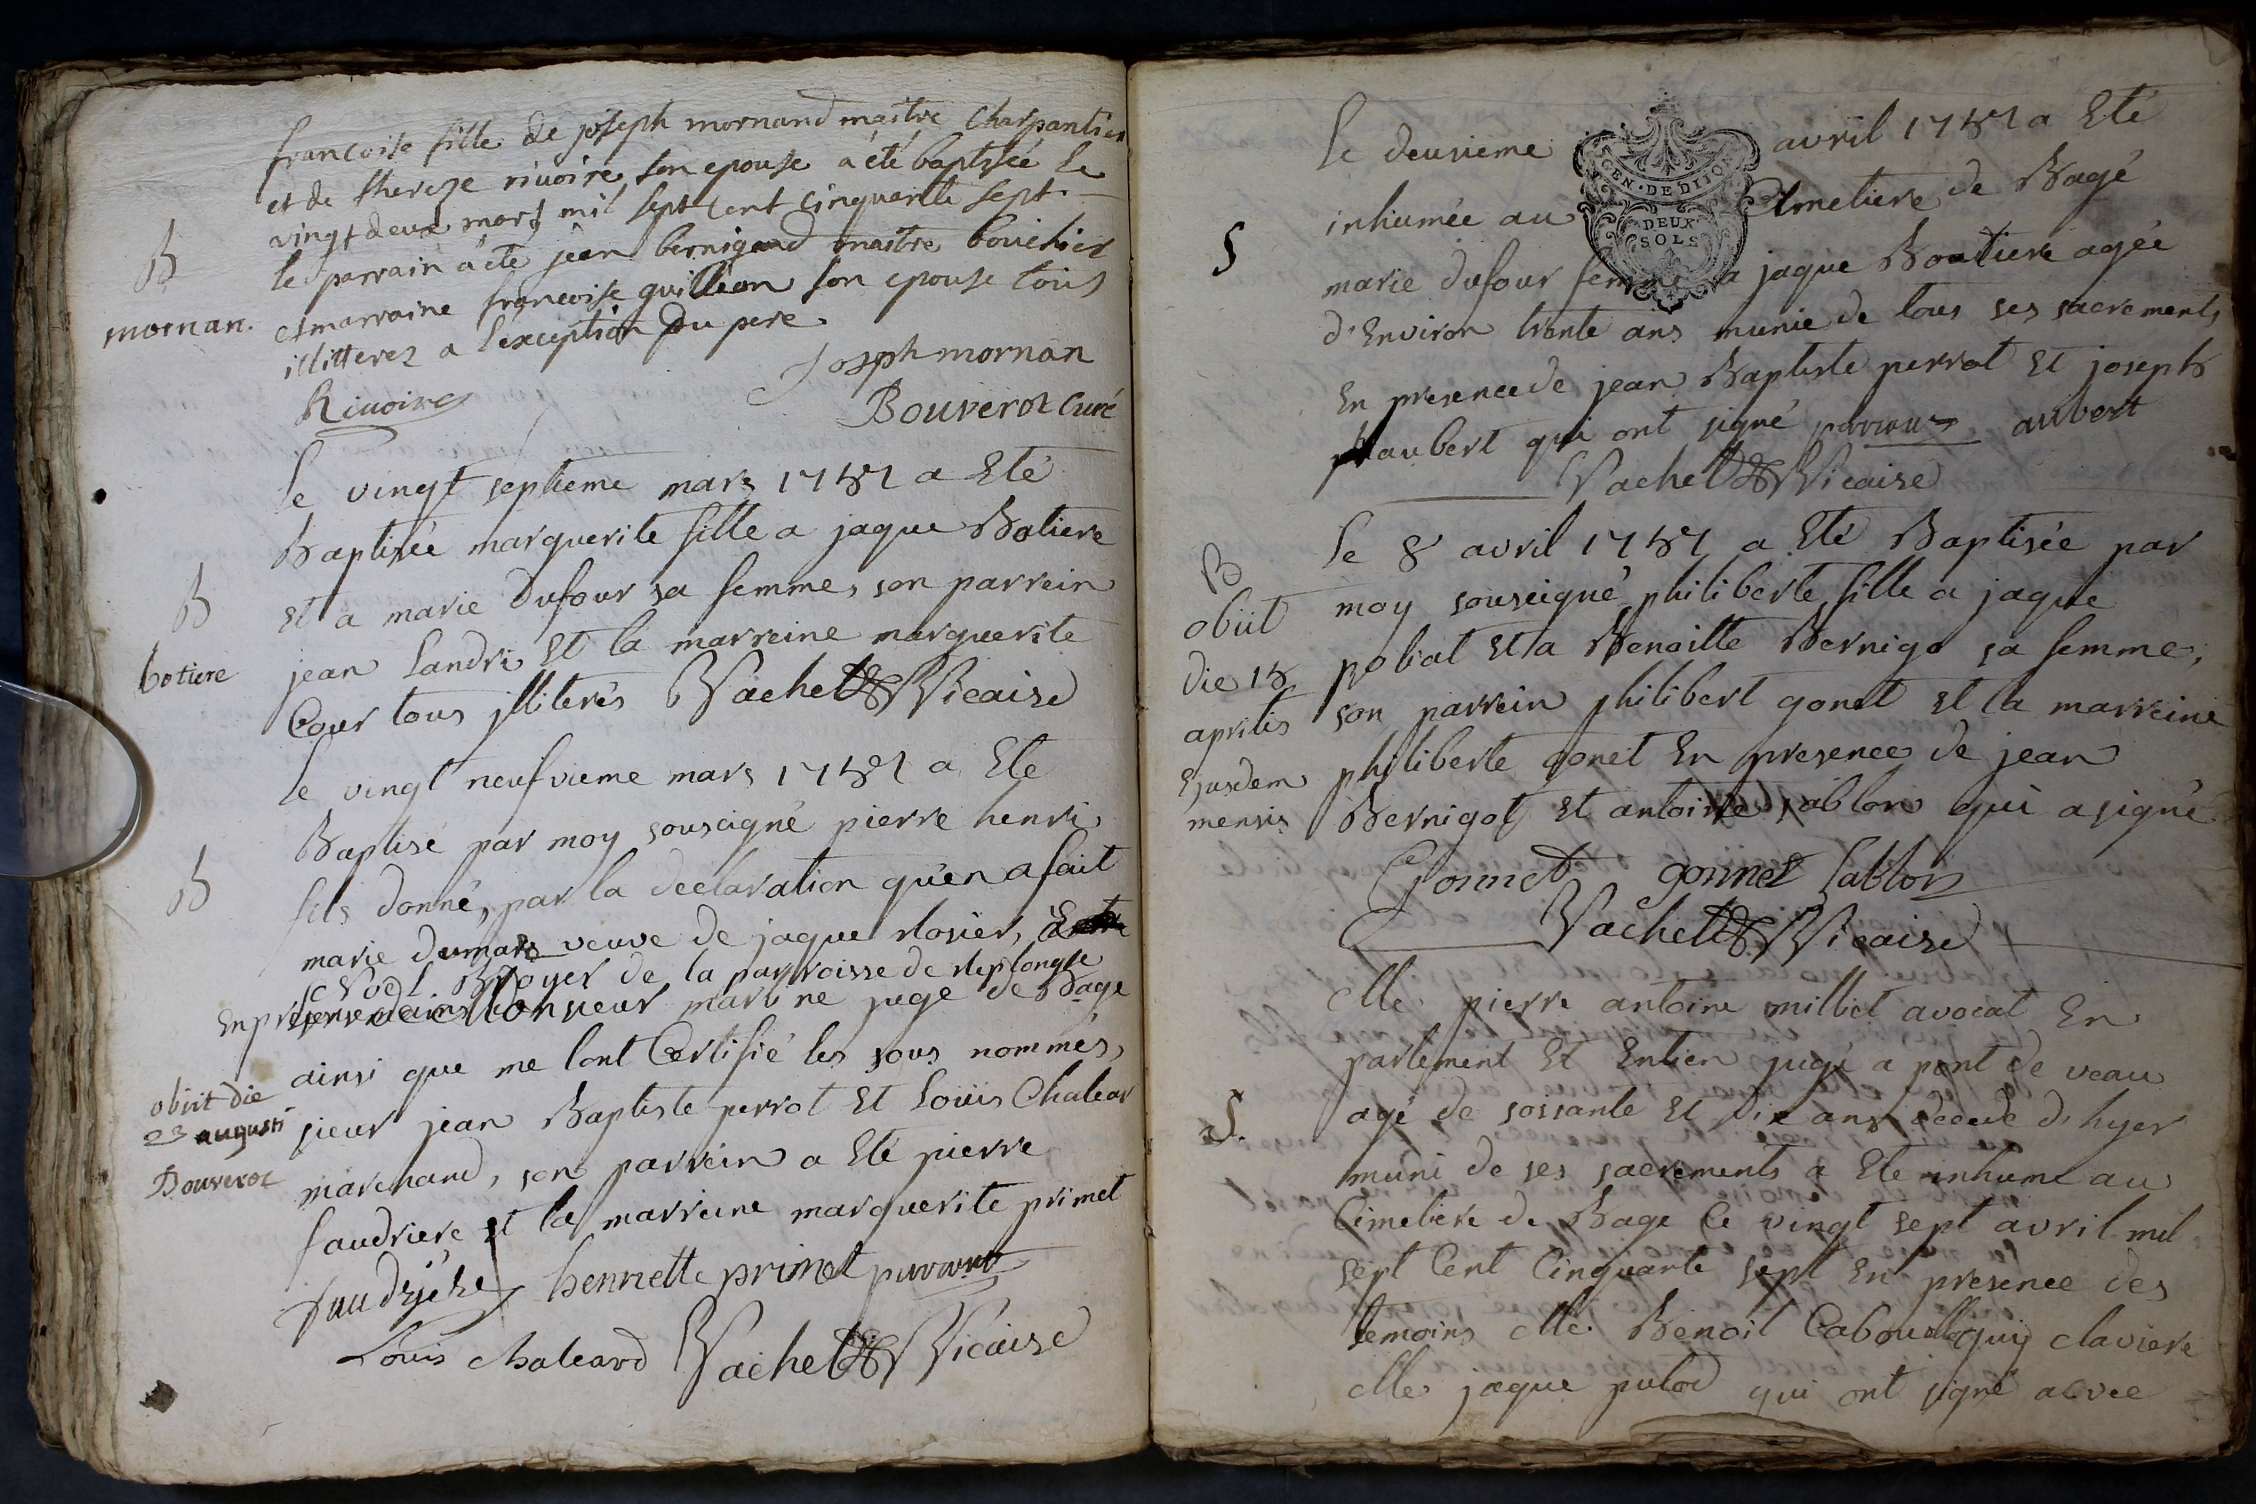 francoise fille de joseph mornand maitre charpantier
et de thereze rivoire son epouse a été baptisée le
vingt deux mars mil sept cent cinquante sept.
B
le parrain a été jean bernigaud maitre bouchier
mornan.
et marraine francoise guilleon son epouse tous
illitterez a lexception du pere
Rivoire
Joseph mornan
Bouverot curé
le vingt septieme mars 1757 a Eté
Baptisée marguerite fille a jaque Botiere
B
Et a marie dufour sa femme, son parrein
botiere
jean Landri Et la marreine marguerite
Cour tous jlliterés Vachet Vicaire
le vingt neufvieme mars 1757 a Eté
Baptisé par moy souscigné pierre henri
B
fils donné, par la declaration qu'en a fait
marie dumas veuve de jaque rosier,
Royer de la parroisse de replonge
En presence de Monsieur marine juge de Bage
ainsi que me lont Certifié les sous nommés,
obiit die
23 augusti
Bouverot
sieur jean Baptiste perrot Et Louis Chalear
marchand, son parrein a Eté pierre
faudriere Et la marreine marguerite primet
faudrjére henriette primet
Louis chaleard Vachet Vicaire
le deusieme avril 1757 a Eté
GEN. DE DIJON
DEUX
SOLS
inhumée au Cimetiere de Bagé
S
marie dufour femme a jaque Boutiere agée
d'Environ trente ans munie de tous ses sacrements
En presence de jean Baptiste perrot Et joseph
aubert qui ont signé aubert
Vachet Vicaire
B
obiit
die 15
aprilis
Ejusdem
mensis
le 8 avril 1757 a Eté Baptisée par
moy souscigné philiberte fille a jaque
pobiat Et a Benoitte Bernigo sa femme,
son parrein philibert gonet Et la marreine
philiberte gonet En presence de jean
Bernigot Et antoine sablon qui a signé
Gonnet gonnet Sablon
Vachet Vicaire
Me. pierre antoine milliet avocat En
parlement Et Entien juge a pont de veau
S.
agé de soissante Et Dix ans decedé d'hyer
muni de ses sacrements a Eté inhumé au
Cimetiere de Bage Ce vingt sept avril mil
sept Cent Cinquante sept En presence des
temoins Me. Benoit
Me. jaque pulod qui ont signé avec